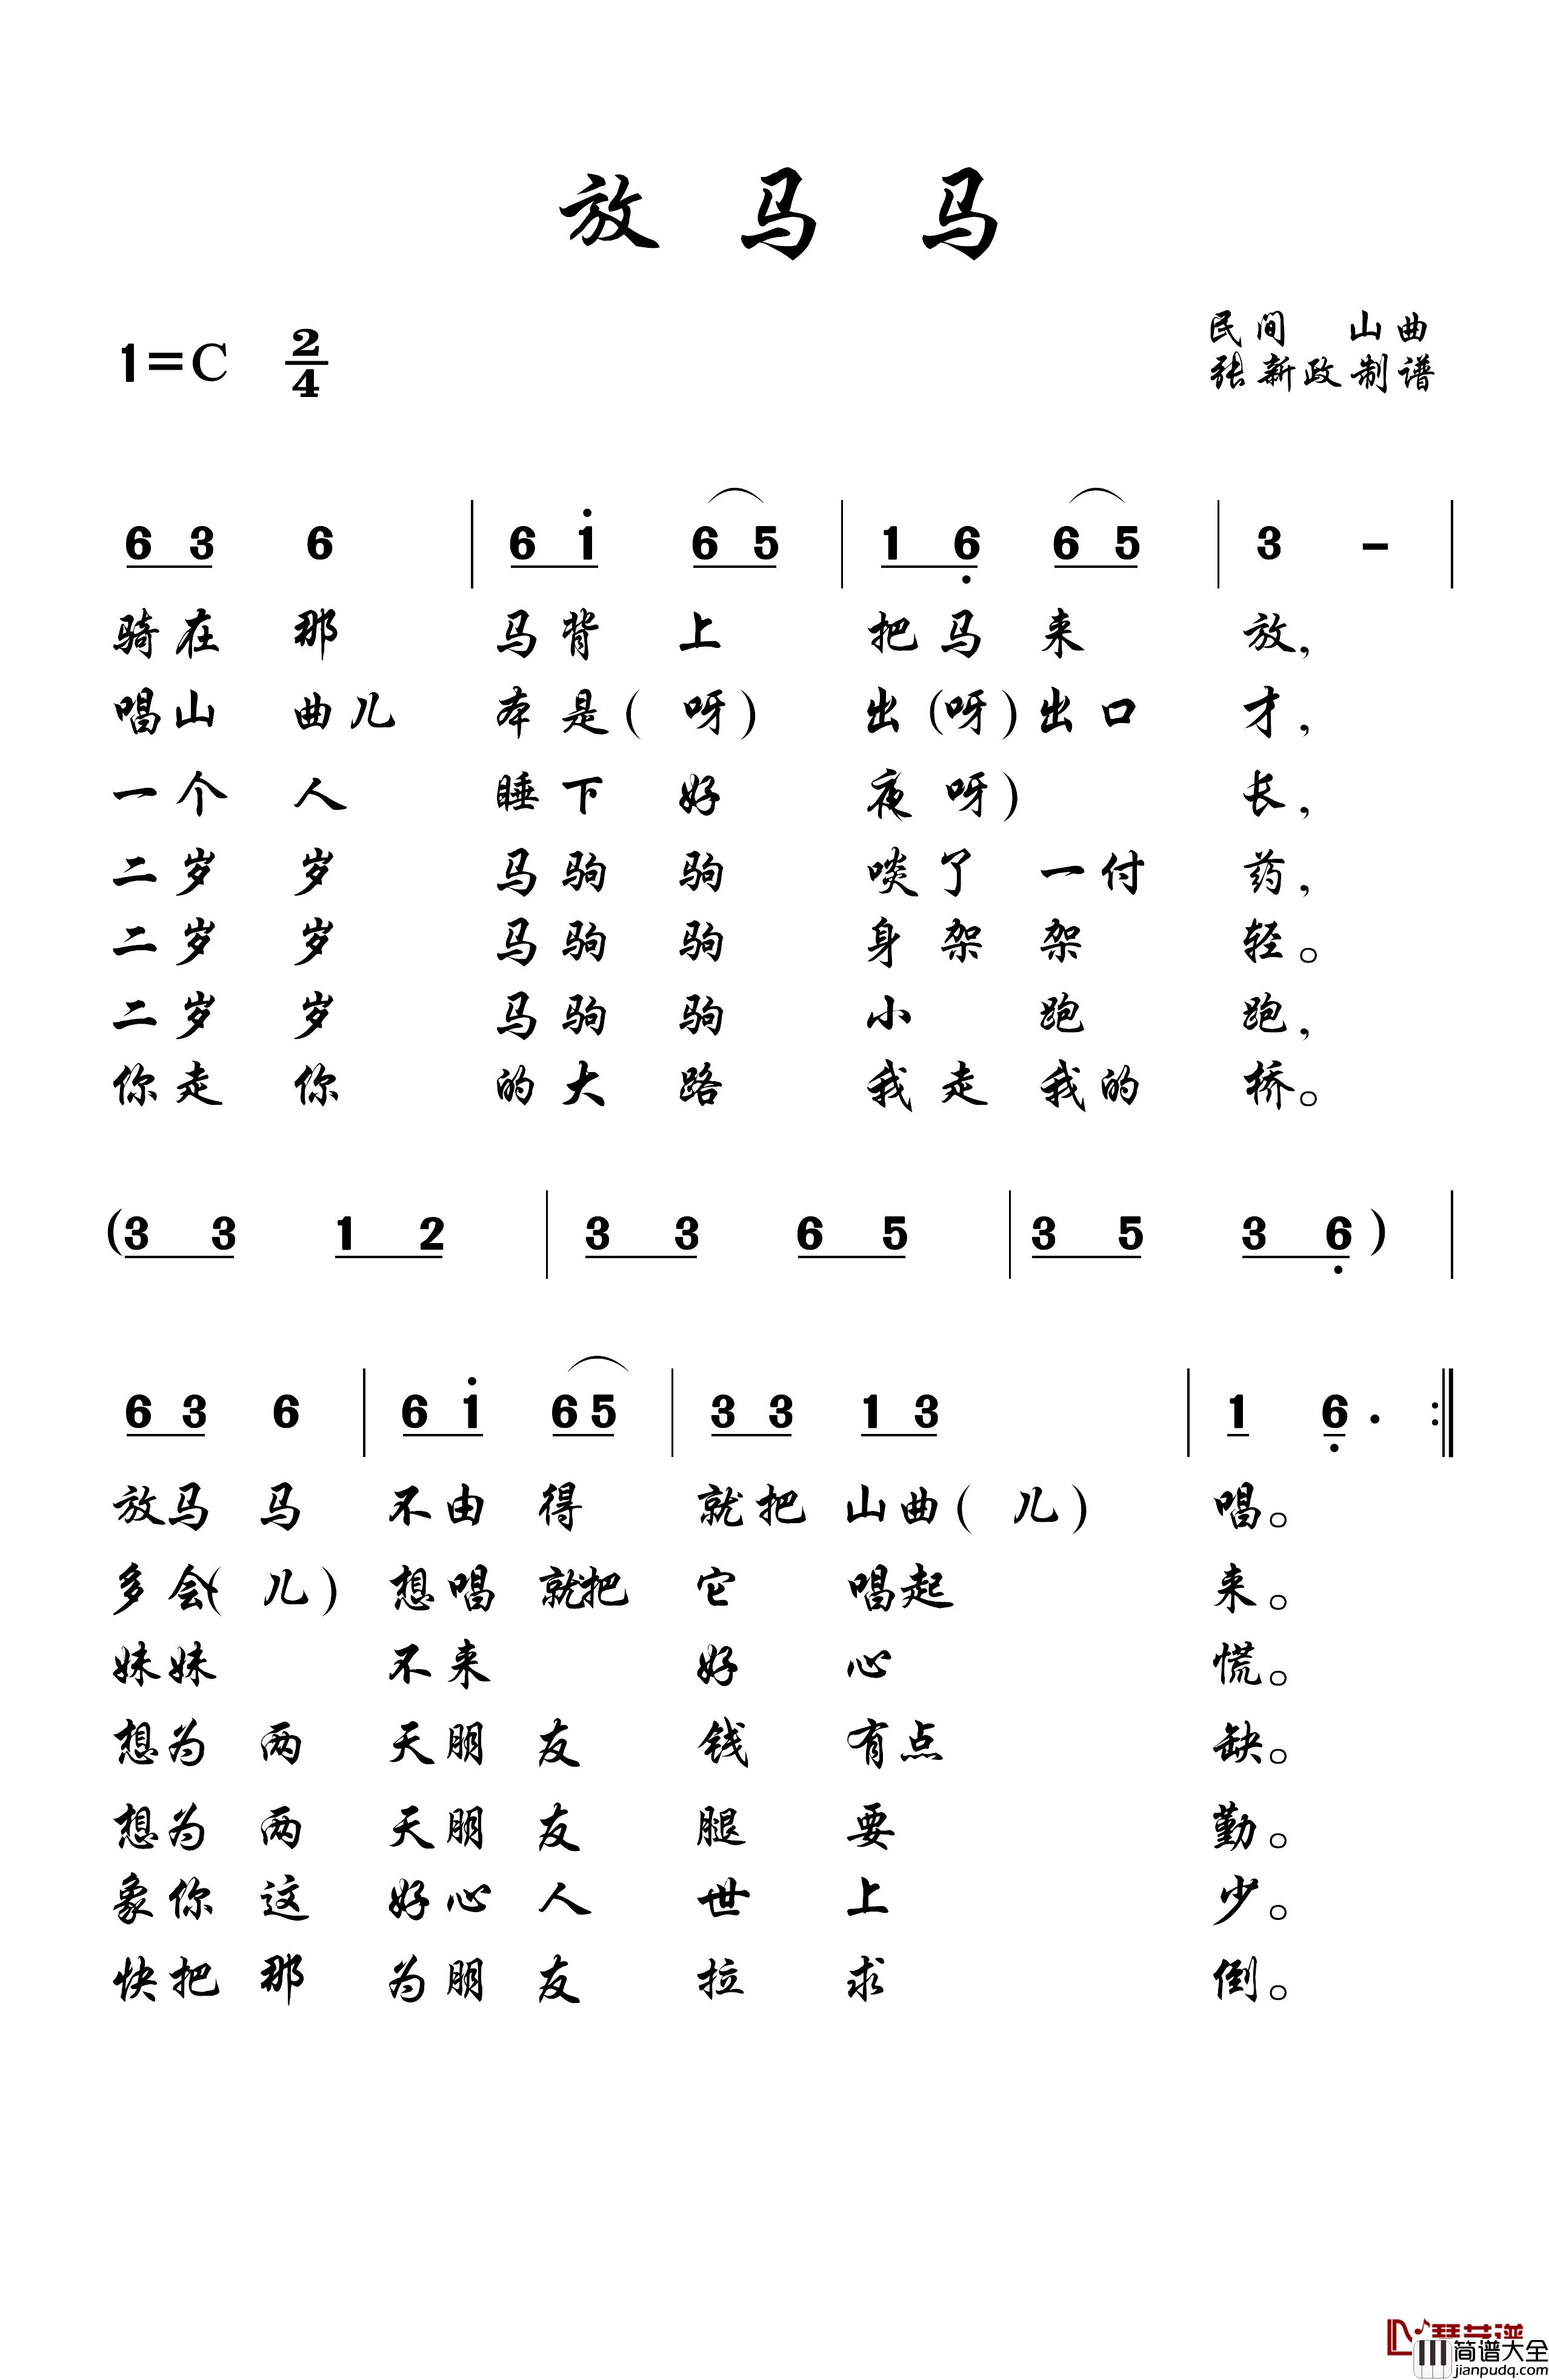 放马马
民间 山曲
1=C 2/4
张新政制谱
6 3 6 | 6 1 6 5 | 1 6 6 5 | 3 - |
骑在那 马背上 把马来 放，
唱山曲儿 本是(呀) 出(呀)出口 才，
一个人 睡下好 夜呀) 长，
二岁岁 马驹驹 啖了一付 药，
二岁岁 马驹驹 身架架 轻。
二岁岁 马驹驹 小跑 跑，
你走你 的大路 我走我的 桥。
(3 3 1 2 | 3 3 6 5 | 3 5 3 6) |
6 3 6 | 6 1 6 5 | 3 3 1 3 | 1 6 . :||
放马马 不由得 就把山曲(儿) 唱。
多会(儿) 想唱就把 它唱起 来。
妹妹 不来 好心 慌。
想为两 天朋友 钱有点 缺。
想为两 天朋友 腿要 勤。
象你这 好心人 世上 少。
快把那 为朋友 拉求 倒。
琴艺谱
简谱大全
jianpudq.com